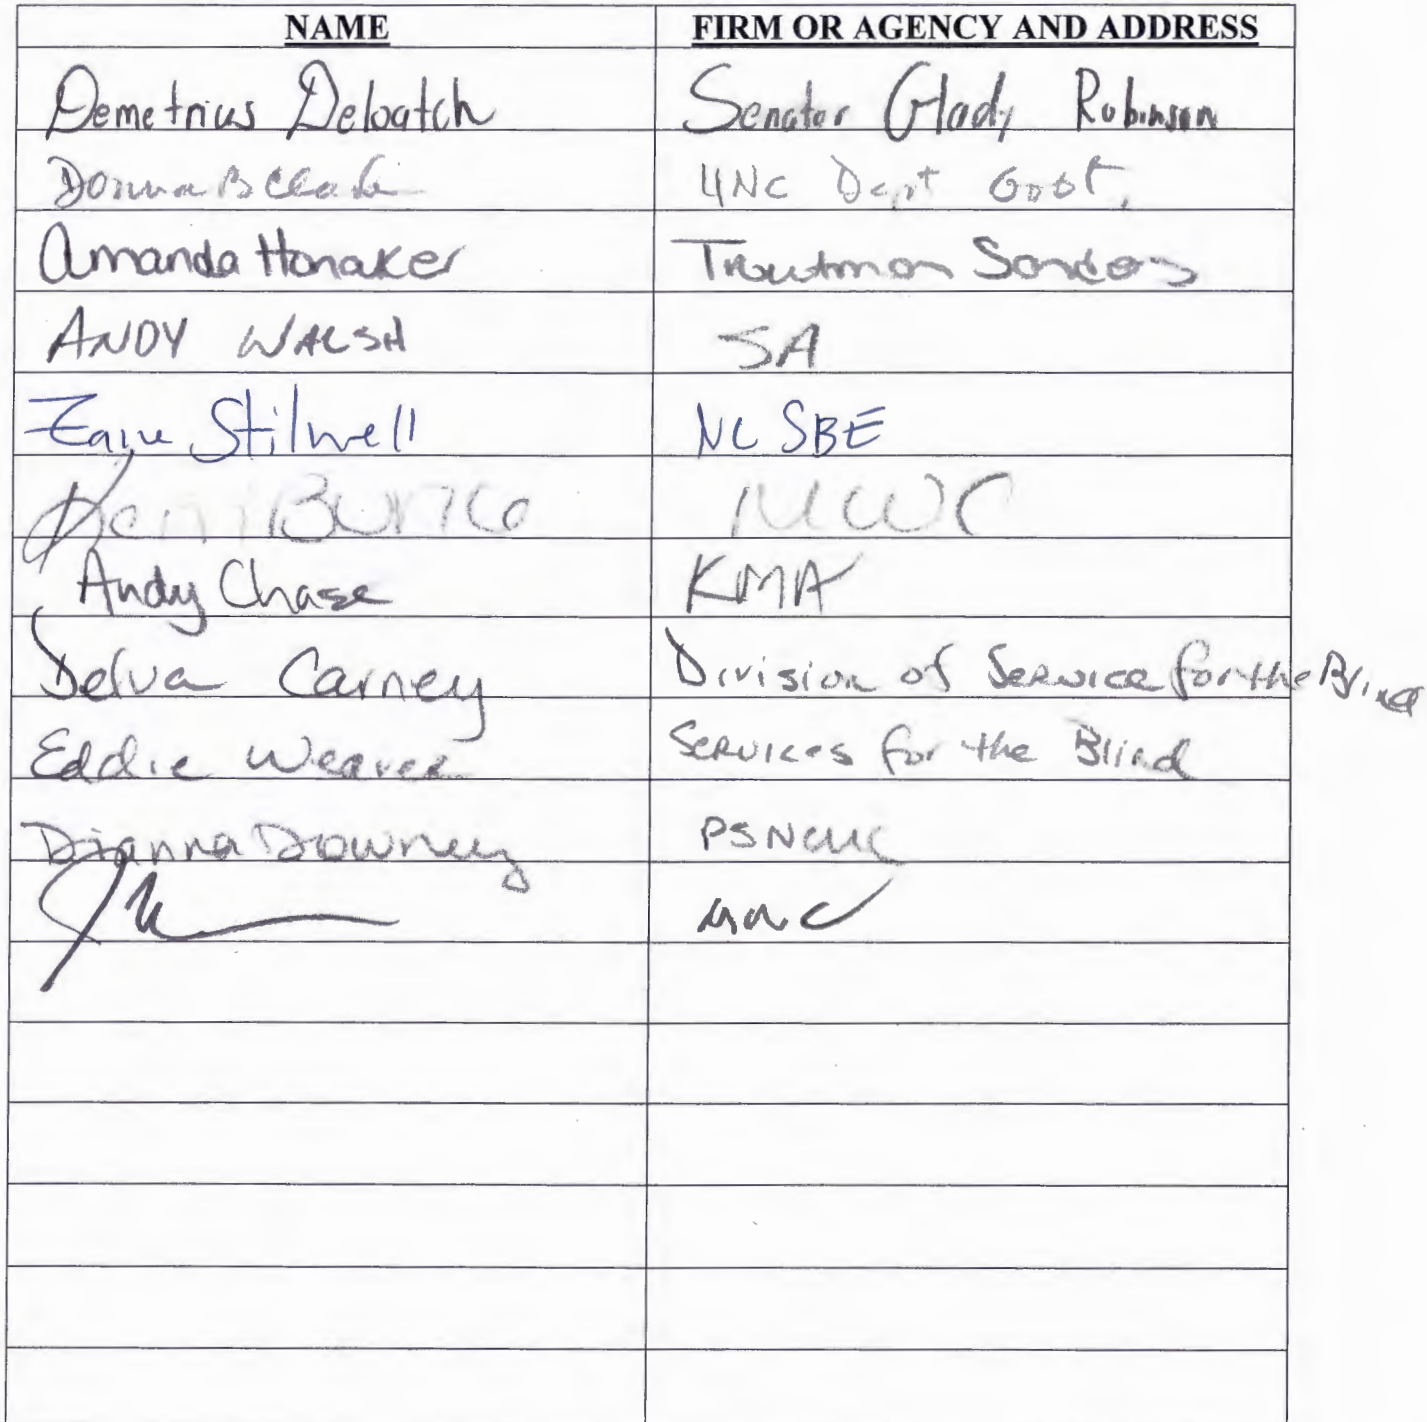 NAME FIRM OR AGENCY AND ADDRESS
Demetrius Deloatch Senator Glady Robinson
Donna B Clark UNC Dept
Amanda Honaker Troutman Sanders
ANDY WALSH SA
Stilwell NC SBE
Burke MWC
Andy Chase KMA
Delva Carney Division of Service for the Blind
Eddie Weaver Services for the Blind
Dianna Downey PSNCUC